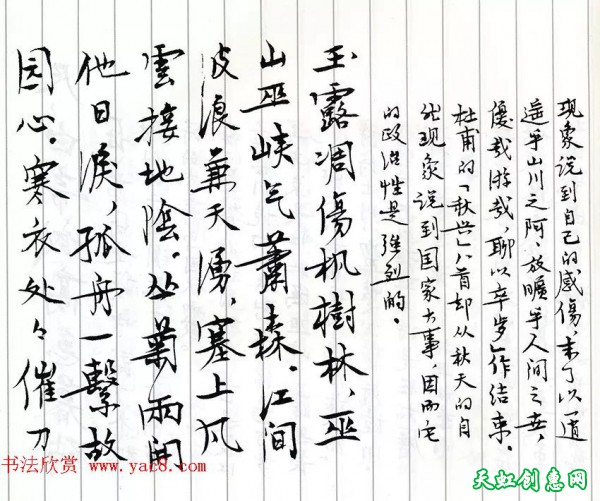 现象说到自己的感傷，末了以「逍
遥乎山川之阿、放曠乎人间之世，
優哉游哉，聊以卒岁」作结束。
杜甫的「秋興」八首却从秋天的自
然现象说到国家大事，因而它
的政治性是强烈的。
玉露凋傷枫樹林，巫
山巫峡气蕭森。江间
波浪兼天湧，塞上风
雲接地陰。丛菊兩開
他日淚，孤舟一繫故
园心。寒衣处々催刀
书法欣赏 www.yac8.com
天虹创惠网